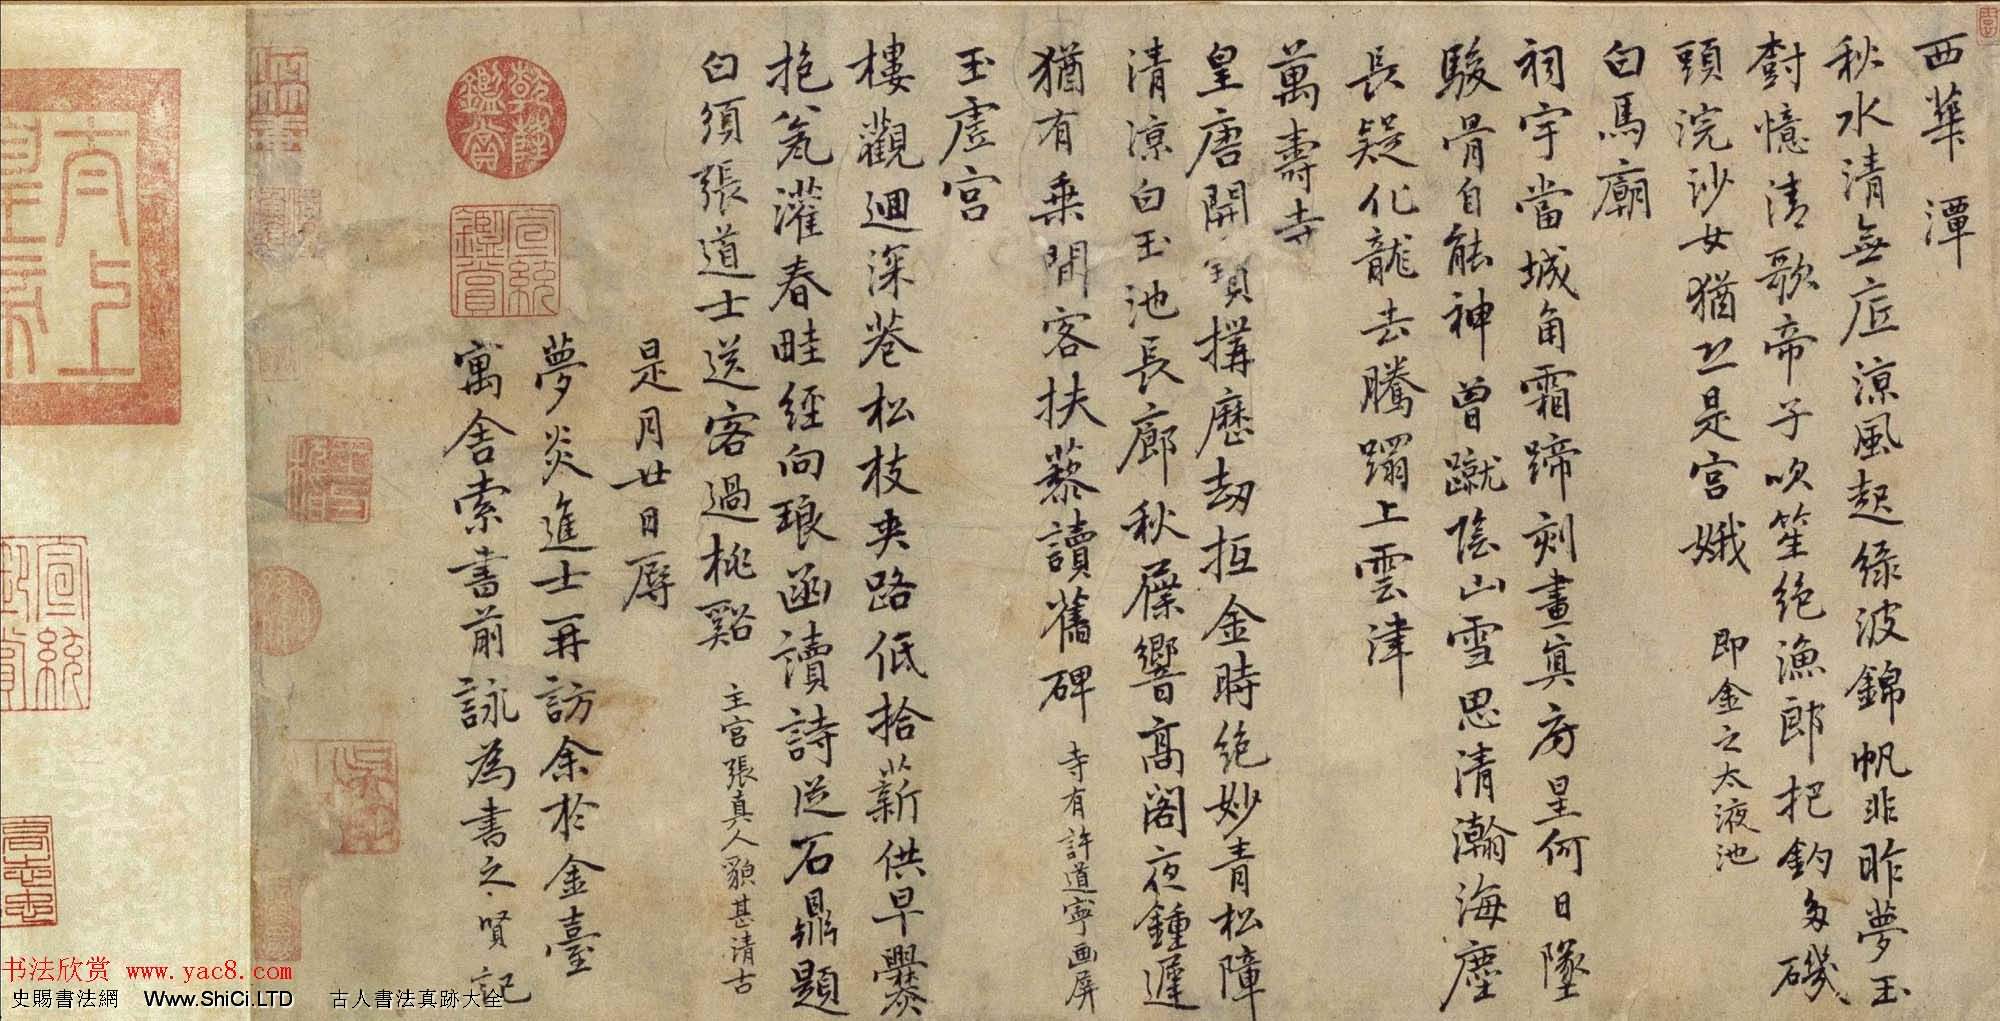 西華潭
秋水清無底涼風起綠波錦帆非昨夢玉
樹憶清歌帝子吹笙絶漁郎把釣多磯
頭浣沙女猶恐是宮娥 即金之太液池
白馬廟
祠宇當城角霜蹄刻畫真房星何日墜
駿骨自能神曾蹴陰山雪思清瀚海塵
長疑化龍去騰躡上雲津
萬壽寺
皇唐開寶構歷劫抵金時絶妙青松障
清涼白玉池長廊秋屧響高閣夜鍾遲
猶有乗閒客扶藜讀舊碑 寺有許道寧画屏
玉虛宮
樓觀迴深巷松枝夾路低拾薪供早爨
抱瓮灌春畦經向琅函讀詩從石鼎題
白須張道士送客過桃谿 主宮張真人貌甚清古
是月廿日
夢炎進士再訪余於金臺
寓舎索書前詠為書之賢記
乾隆鑑賞
宣統鑑賞
太上
宣統
書法欣賞 www.yac8.com
史賜書法網 Www.ShiCi.LTD 古人書法真跡大全